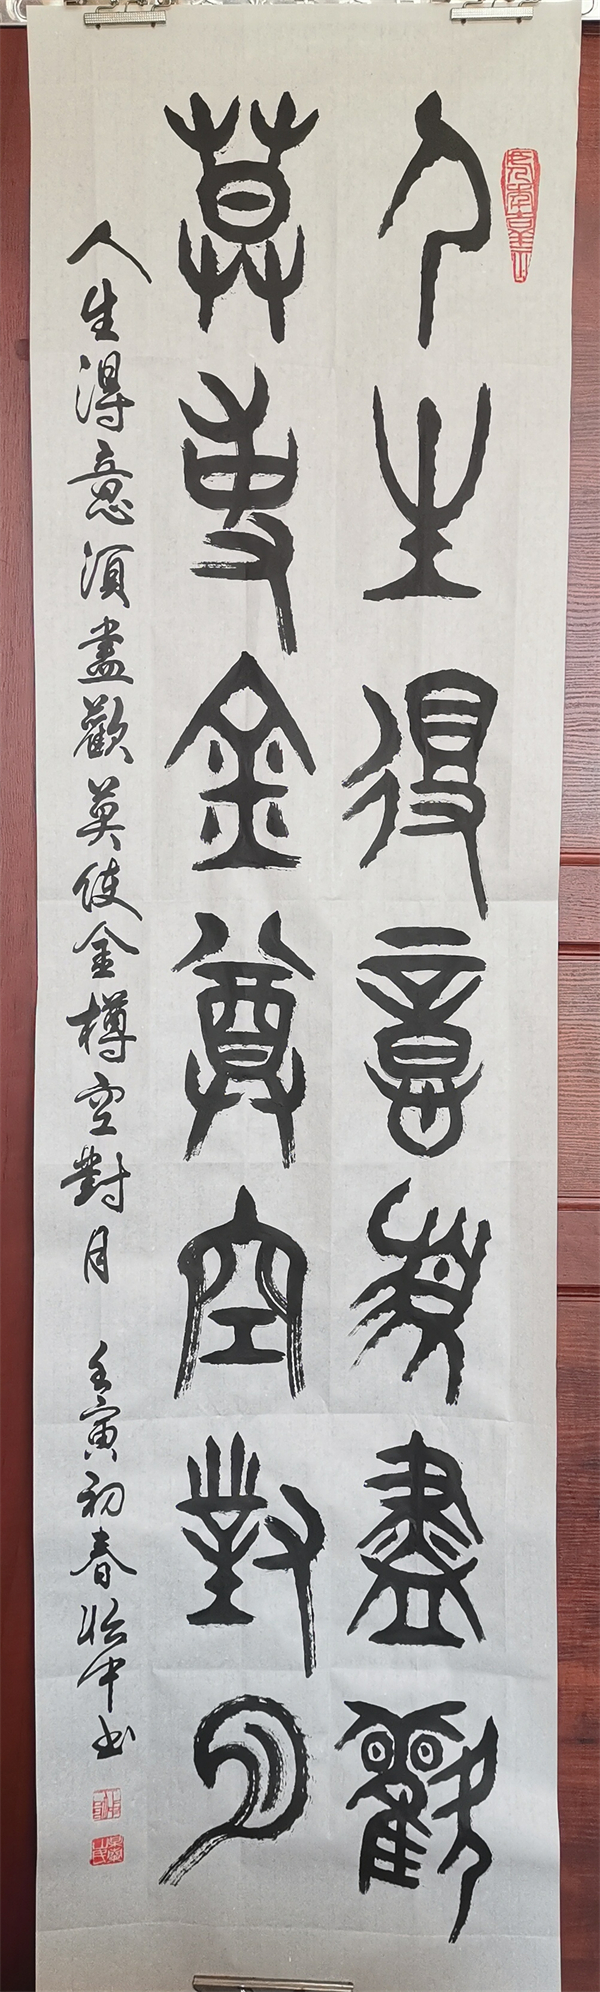 人生得意須盡歡
莫使金尊空對月
人生得意須盡歡莫使金樽空對月 壬寅初春於中书